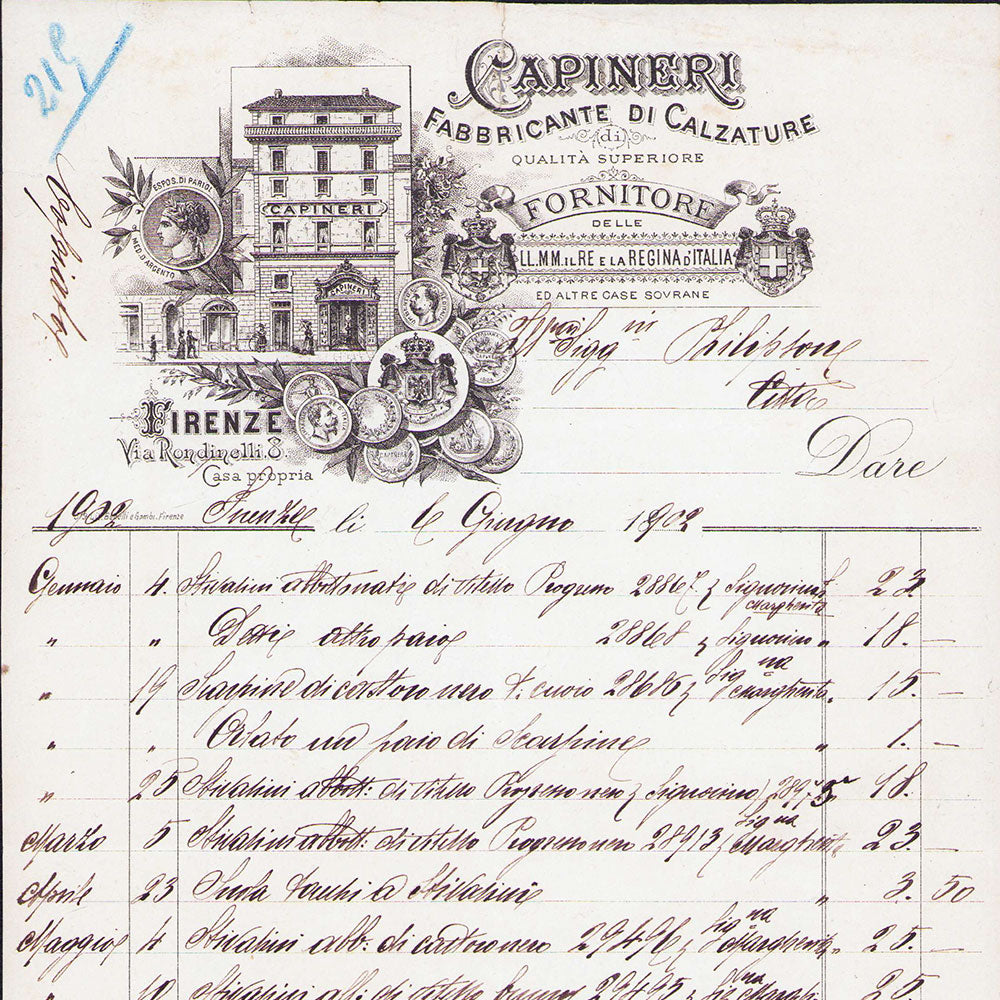 215
CAPINERI
FABBRICANTE DI CALZATURE
(di)
QUALITÀ SUPERIORE
FORNITORE
DELLE
LL.MM. IL RE E LA REGINA D'ITALIA
ED ALTRE CASE SOVRANE
ESPOS. DI PARIGI
MED. D'ARGENTO
CAPINERI
CAPINERI
Sigg
Città
FIRENZE
Via Rondinelli. 8.
Casa propria
Dare
1902 Firenze li 6 Giugno 1902
Gambi. Firenze
Gennaio 4. Stivalini abbottonati di vitello Progresso 28867 Signorina Margherita £ 23
" " Detti altro paio 28868 Signorino " 18. —
" 19 Scarpine di castoro nero 28686 Sig na Margherita " 15. —
" " Orlato un paio di Scarpine " 1. —
" 25 Stivalini abbott: di vitello Progresso nero Signorino 18.
Marzo 5 Stivalini abbott: di vitello Progresso nero 28913 Sig na Margherita 23. —
Aprile 23 Suola tacchi a Stivalini " 3. 50
Maggio 4 Stivalini abb: di castoro nero 29496 Sig na Margherita " 25. —
" 10 Stivalini abb: di vitello 29495 25